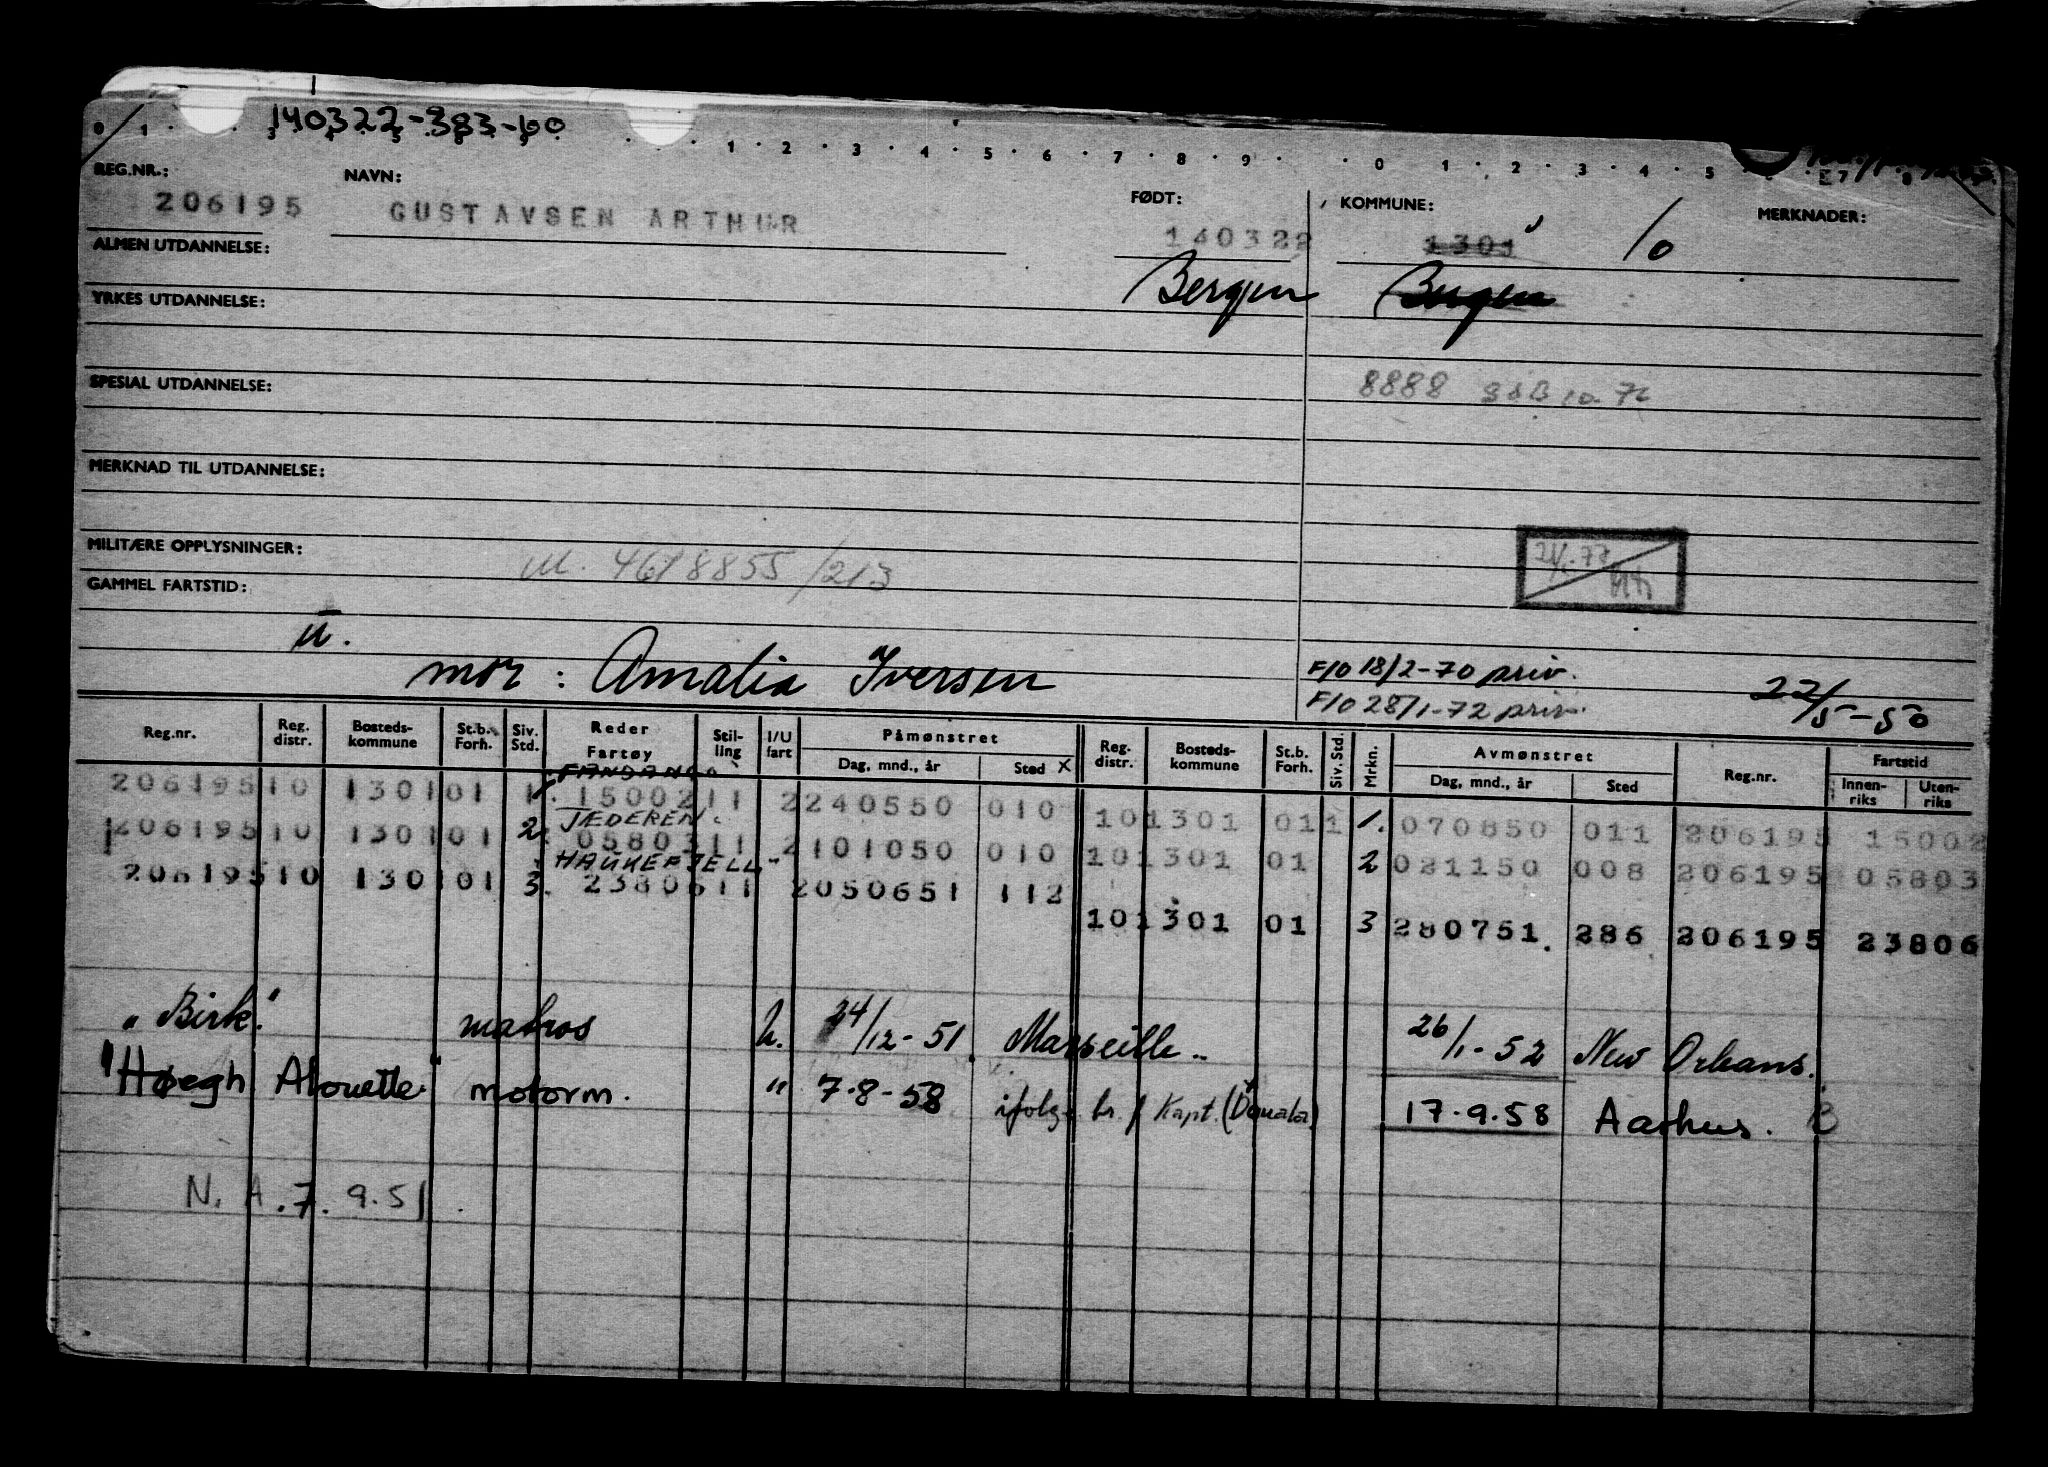 140322-383-60
0 1 3 1 2 3 4 5 6 7 8 9 0 1 2 3 4 5 7 8
REG.NR.: NAVN: FØDT: KOMMUNE: MERKNADER:
206195 GUSTAVSEN ARTHUR 140322 1301 10
ALMEN UTDANNELSE:
Bergen Bergen
YRKES UTDANNELSE:
SPESIAL UTDANNELSE:
8888
MERKNAD TIL UTDANNELSE:
MILITÆRE OPPLYSNINGER:
M. 4618855/213
GAMMEL FARTSTID:
u.
mor : Amalia Iversen
F/O 18/2-70 priv.
F/O 28/1-72 priv.
22/5-50
Reg.nr. Reg. distr. Bosteds-kommune St.b. Forh. Siv. Std. Reder Fartøy Stil-ling I/U fart Påmønstret Dag, mnd., år Sted X Reg. distr. Bosteds-kommune St.b. Forh. Siv. Std. Mrkn. Avmønstret Dag, mnd., år Sted Reg.nr. Fartstid Innen-riks Uten-riks
FANDANGO
206195 10 1301 01 1. 15002 11 2 240550 010 10 1301 01 1 1. 070850 011 206195 15002
JÆDEREN
206195 10 1301 01 2 05803 11 2 101050 010 10 1301 01 2 021150 008 206195 05803
HAUKEFJELL"
206195 10 1301 01 3. 23806 11 2 050651 112
10 1301 01 3 280751. 286 206195 23806
"Birk." matros u. 24/12-51. Marseille.. 26/1-52 New Orleans.
"Høegh Alouette" motorm. " 7-8-58 ifølge br. f Kapt. (Douala) 17.9.58 Aarhus.
N.A. 7. 9.51.